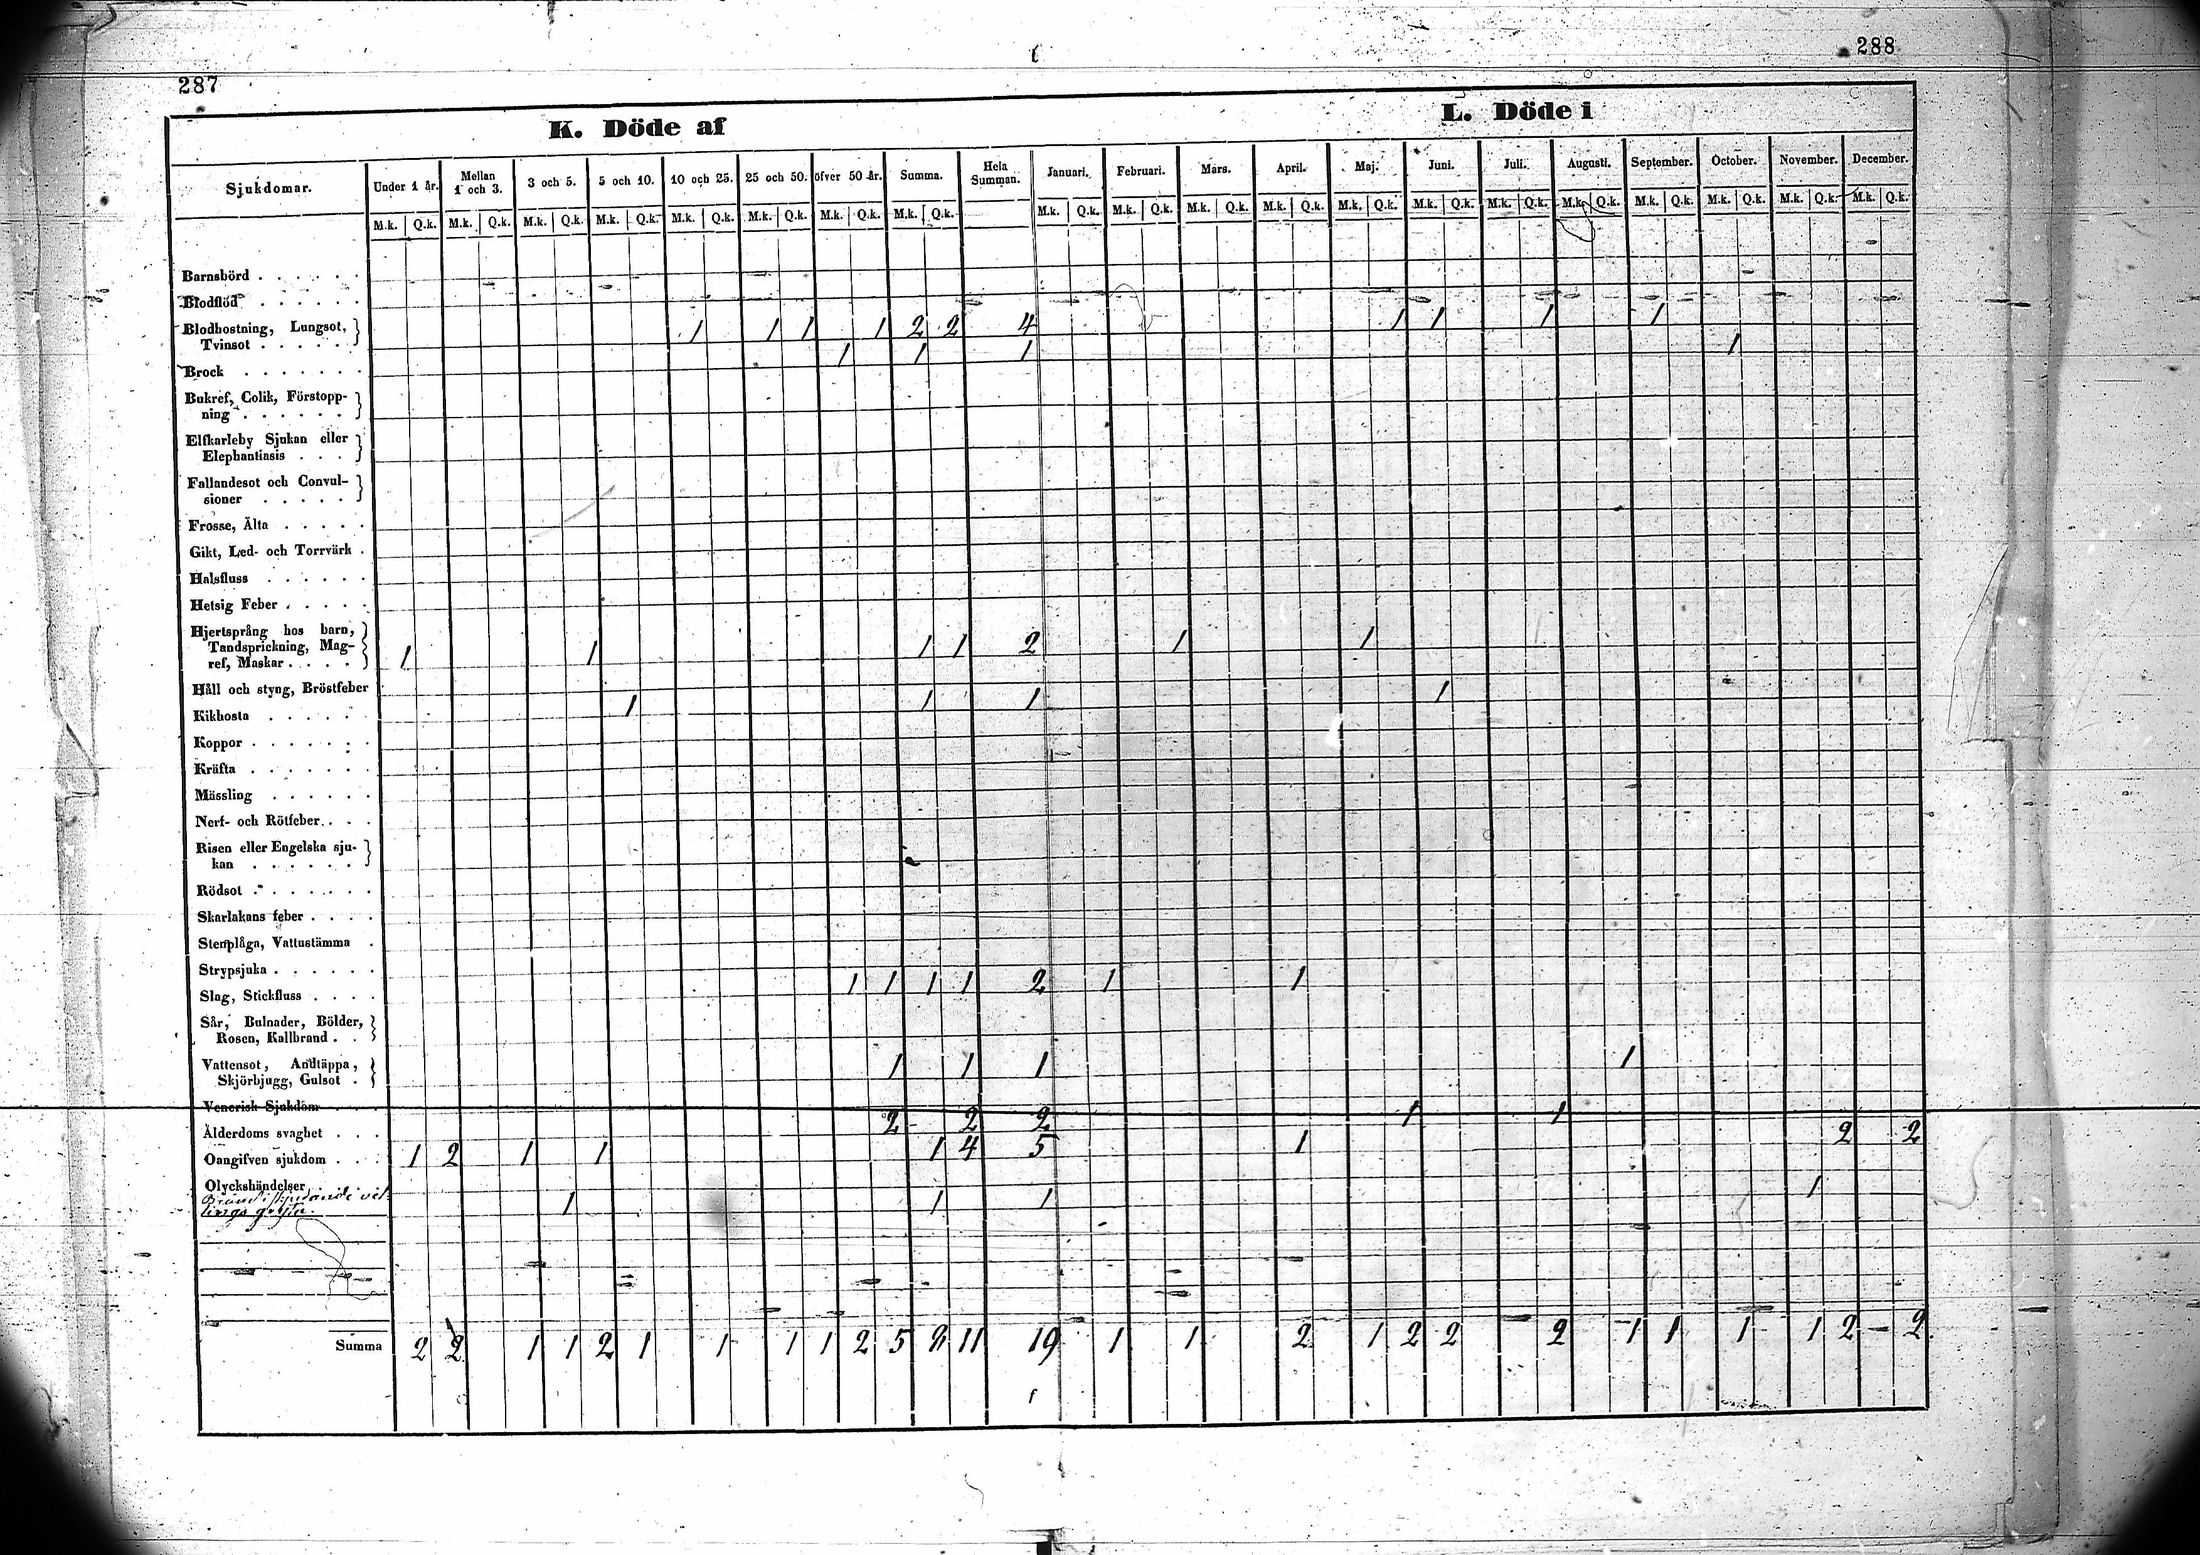 288
287
K. Döde af
L. Döde i
Sjukdomar. Under 1 år. Mellan 1 och 3. 3 och 5. 5 och 10. 10 och 25. 25 och 50. öfver 50 år. Summa. Hela Summan. Januari. Februari. Mars. April. Maj. Juni. Juli. Augusti. September. October. November. December.
M.k. Q.k. M.k. Q.k. M.k. Q.k. M.k. Q.k. M.k. Q.k. M.k. Q.k. M.k. Q.k. M.k. Q.k. M.k. Q.k. M.k. Q.k. M.k. Q.k. M.k. Q.k. M.k. Q.k. M.k. Q.k. M.k. Q.k. M.k. Q.k. M.k. Q.k. M.k. Q.k. M.k. Q.k. M.k. Q.k.
Barnsbörd
Blodflöd
Blodhostning, Lungsot, 1 1 1 1 2 2 4 1 1 1 1
Tvinsot 1 1 1 1
Brock
Bukref, Colik, Förstopp-
ning
Elfkarleby Sjukan eller
Elephantiasis
Fallandesot och Convul-
sioner
Frosse, Älta
Gikt, Led- och Torrvärk
Halsfluss
Hetsig Feber
Hjertsprång hos barn,
Tandsprickning, Mag- 1 1 1 1 2 1 1
ref, Maskar
Håll och styng, Bröstfeber
Kikhosta 1 1 1 1
Koppor
Kräfta
Mässling
Nerf- och Rötfeber
Risen eller Engelska sju-
kan
Rödsot
Skarlakans feber
Stenplåga, Vattustämma
Strypsjuka
Slag, Stickfluss 1 1 1 1 2 1 1
Sår, Bulnader, Bölder,
Rosen, Kallbrand
Vattensot, Andtäppa, 1 1 1 1
Skjörbjugg, Gulsot
Venerisk Sjukdom
Ålderdoms svaghet 2 2 2 1 1
Oangifven sjukdom 1 2 1 1 1 4 5 1 2 2
Olyckshändelser
1 1 1 1
Summa 2 2 1 1 2 1 1 1 1 2 5 8 11 19 1 1 2 1 2 2 2 1 1 1 1 2 2